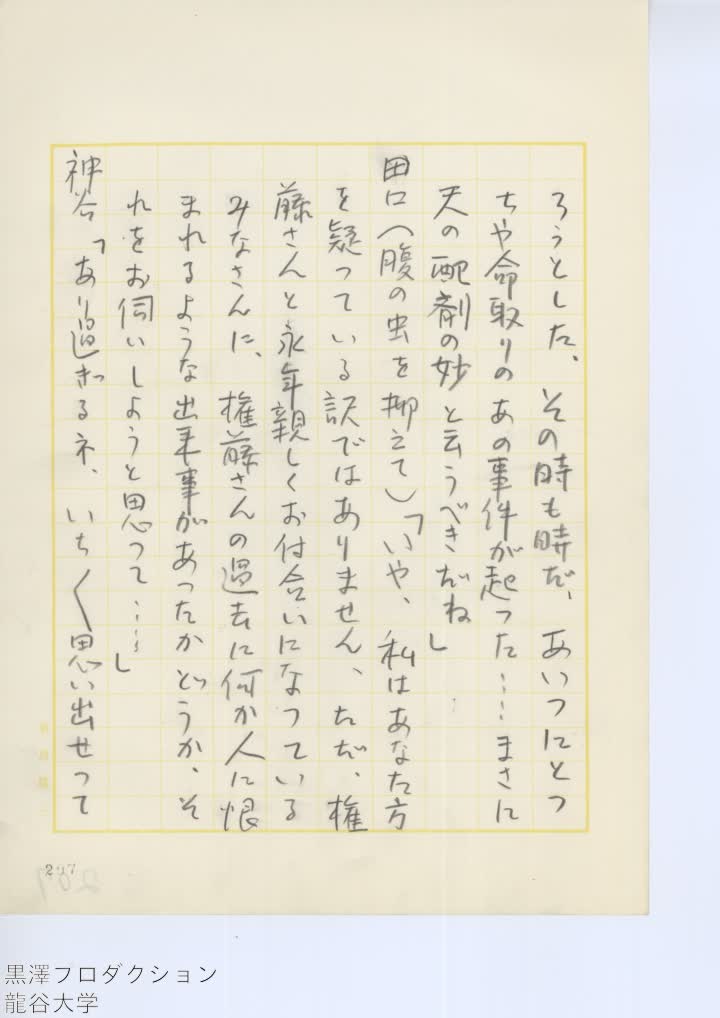 ろうとした、その時も時だ、あいつにとつ
ちや命取りのあの事件が起った……まさに
天の配剤の妙と云うべきだね」
田口（腹の虫を抑えて）「いや、私はあなた方
を疑っている訳ではありません、ただ、権
藤さんと永年親しくお付合いになつている
みなさんに、権藤さんの過去に何か人に恨
まれるような出来事があったかどうか、そ
れをお伺いしようと思つて……」
神谷「あり過ぎるネ、いち〱思い出せつて
207
黒澤プロダクション
龍谷大学